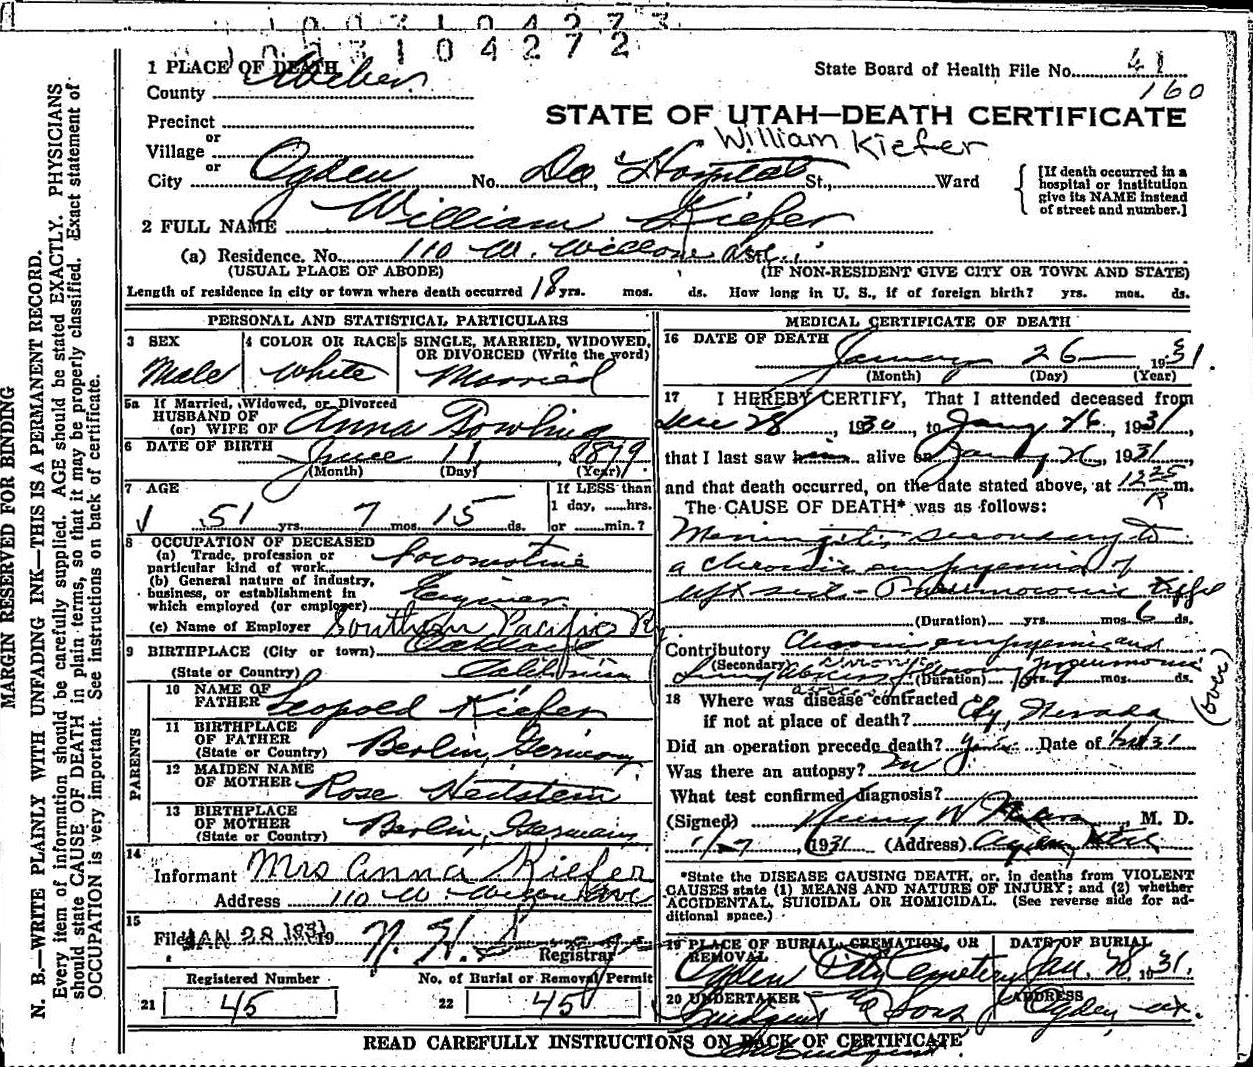 1003104273
1003104272
1 PLACE OF DEATH
County Weber
State Board of Health File No. 41
160
STATE OF UTAH—DEATH CERTIFICATE
William Kiefer
Precinct
or
Village
or
City Ogden No. Dee Hospital St., Ward
[If death occurred in a hospital or institution give its NAME instead of street and number.]
2 FULL NAME William Kiefer
(a) Residence. No. 110 W. Willow Ave.
(USUAL PLACE OF ABODE) (IF NON-RESIDENT GIVE CITY OR TOWN AND STATE)
Length of residence in city or town where death occurred 18 yrs. mos. ds. How long in U. S., if of foreign birth? yrs. mos. ds.
PERSONAL AND STATISTICAL PARTICULARS
3 SEX Male
4 COLOR OR RACE White
5 SINGLE, MARRIED, WIDOWED, OR DIVORCED (Write the word) Married
5a If Married, Widowed, or Divorced
HUSBAND OF
(or) WIFE OF Anna Bowling
6 DATE OF BIRTH June 11 1879
(Month) (Day) (Year)
7 AGE 51 yrs. 7 mos. 15 ds.
If LESS than 1 day, ......hrs. or ......min.?
8 OCCUPATION OF DECEASED
(a) Trade, profession or particular kind of work Locomotive
(b) General nature of industry, business, or establishment in which employed (or employer) Engineer
(c) Name of Employer Southern Pacific Ry
9 BIRTHPLACE (City or town) Oakland
(State or Country) California
PARENTS
10 NAME OF FATHER Leopold Kiefer
11 BIRTHPLACE OF FATHER (State or Country) Berlin, Germany
12 MAIDEN NAME OF MOTHER Rose Heitstein
13 BIRTHPLACE OF MOTHER (State or Country) Berlin, Germany
14
Informant Mrs Anna Kiefer
Address 110 W. Ave
15
Filed JAN 28 1931 19 N. H.
Registrar
Registered Number
21 45
No. of Burial or Removal Permit
22 45
MEDICAL CERTIFICATE OF DEATH
16 DATE OF DEATH
January 26 1931
(Month) (Day) (Year)
17 I HEREBY CERTIFY, That I attended deceased from
Dec 28, 1930, to Jany 26, 1931,
that I last saw him alive on Jany 26, 1931,
and that death occurred, on the date stated above, at 12 25 P m.
The CAUSE OF DEATH* was as follows:
Meningitis secondary to
a chronic empyemia of
left side - Pneumococcic
(Duration) yrs. mos. 6 ds.
Contributory Chronic empyemia and
(Secondary) Lung Abscess following pneumonia
(Duration) yrs. mos. ds.
(over)
18 Where was disease contracted
if not at place of death? Ely, Nevada
Did an operation precede death? yes Date of
Was there an autopsy? no
What test confirmed diagnosis?
(Signed) M. D.
1/27, 1931 (Address) Ogden Utah
*State the DISEASE CAUSING DEATH, or, in deaths from VIOLENT CAUSES state (1) MEANS AND NATURE OF INJURY; and (2) whether ACCIDENTAL, SUICIDAL OR HOMICIDAL. (See reverse side for additional space.)
19 PLACE OF BURIAL, CREMATION, OR REMOVAL
Ogden City Cemetery
DATE OF BURIAL
Jan. 28, 1931.
20 UNDERTAKER
Lindquist & Sons
ADDRESS
Ogden, ut.
READ CAREFULLY INSTRUCTIONS ON BACK OF CERTIFICATE
MARGIN RESERVED FOR BINDING
N. B.—WRITE PLAINLY WITH UNFADING INK—THIS IS A PERMANENT RECORD.
Every item of information should be carefully supplied. AGE should be stated EXACTLY. PHYSICIANS
should state CAUSE OF DEATH in plain terms, so that it may be properly classified. Exact statement of
OCCUPATION is very important. See instructions on back of certificate.